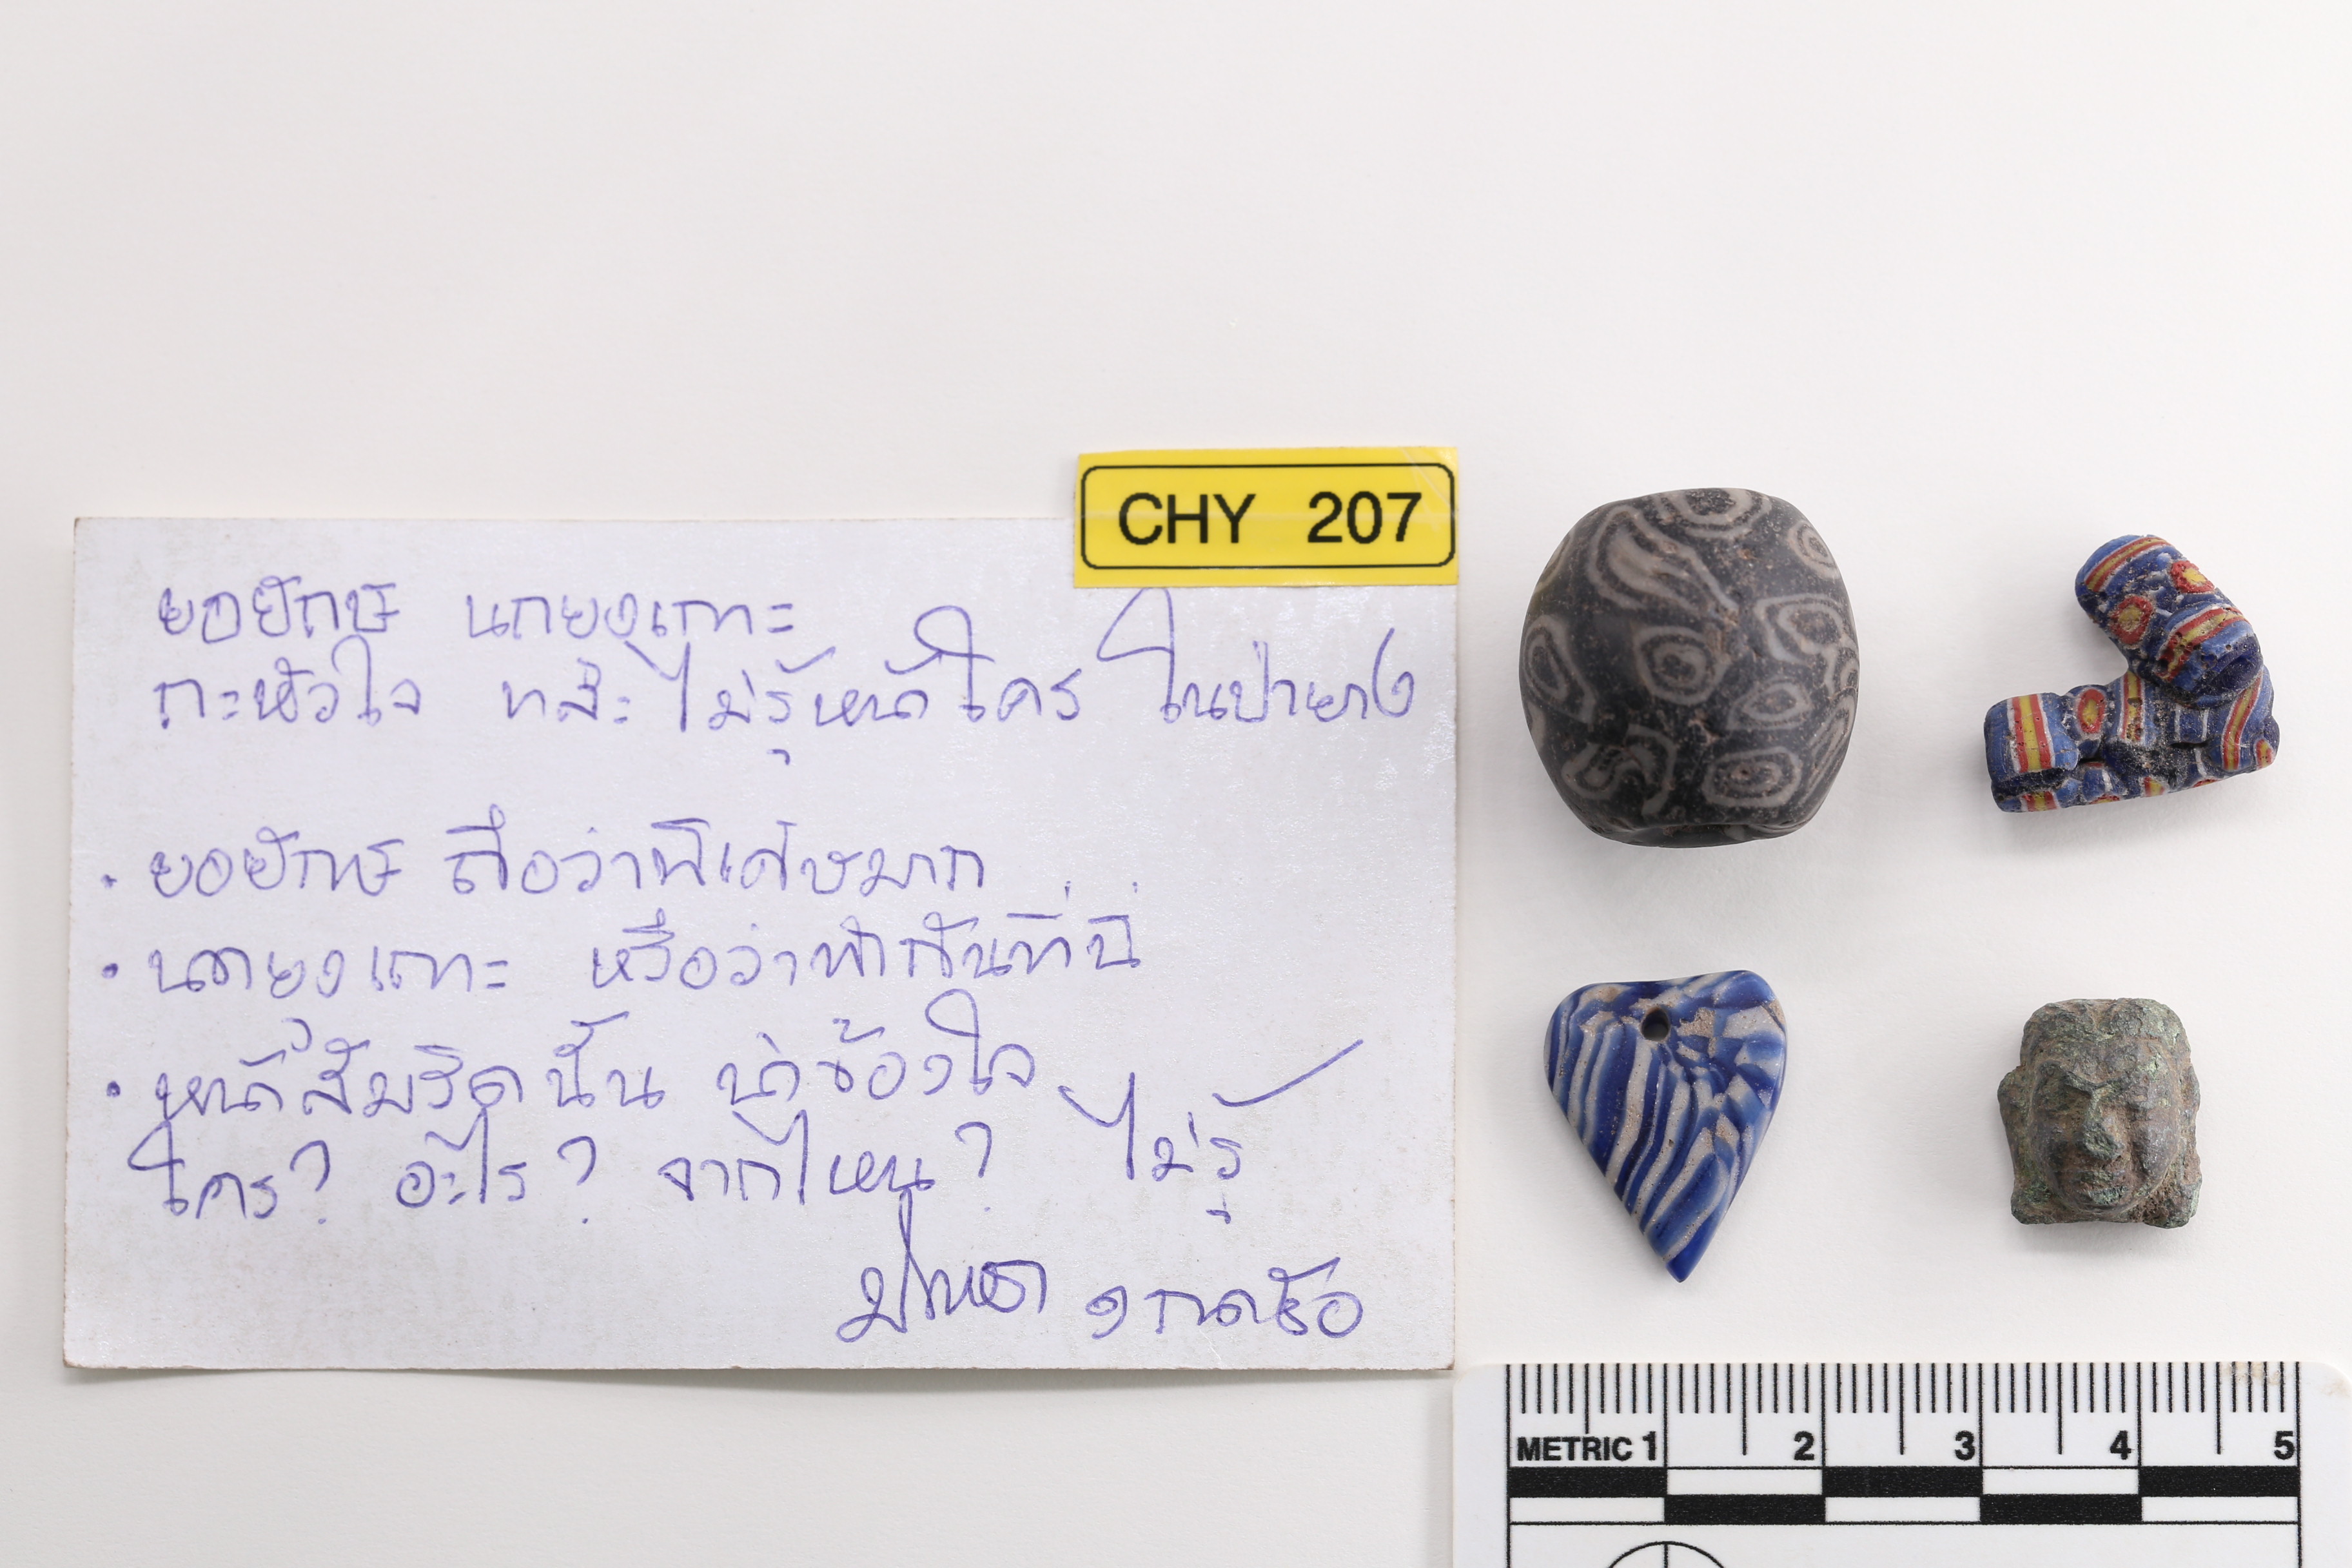 CHY 207
ยอยักษ์ นกยูงเกาะ
กะหัวใจ และ ไม่รู้หน้าใคร ในป่ายาง
• ยอยักษ์ ถือว่าพิเศษมาก
• นกยูงเกาะ หรือว่าทำกันที่นี่
• หน้าสัมริดนั้น น่าข้องใจ
ใคร? อะไร? จากไหน? ไม่รู้
METRIC 1 2 3 4 5